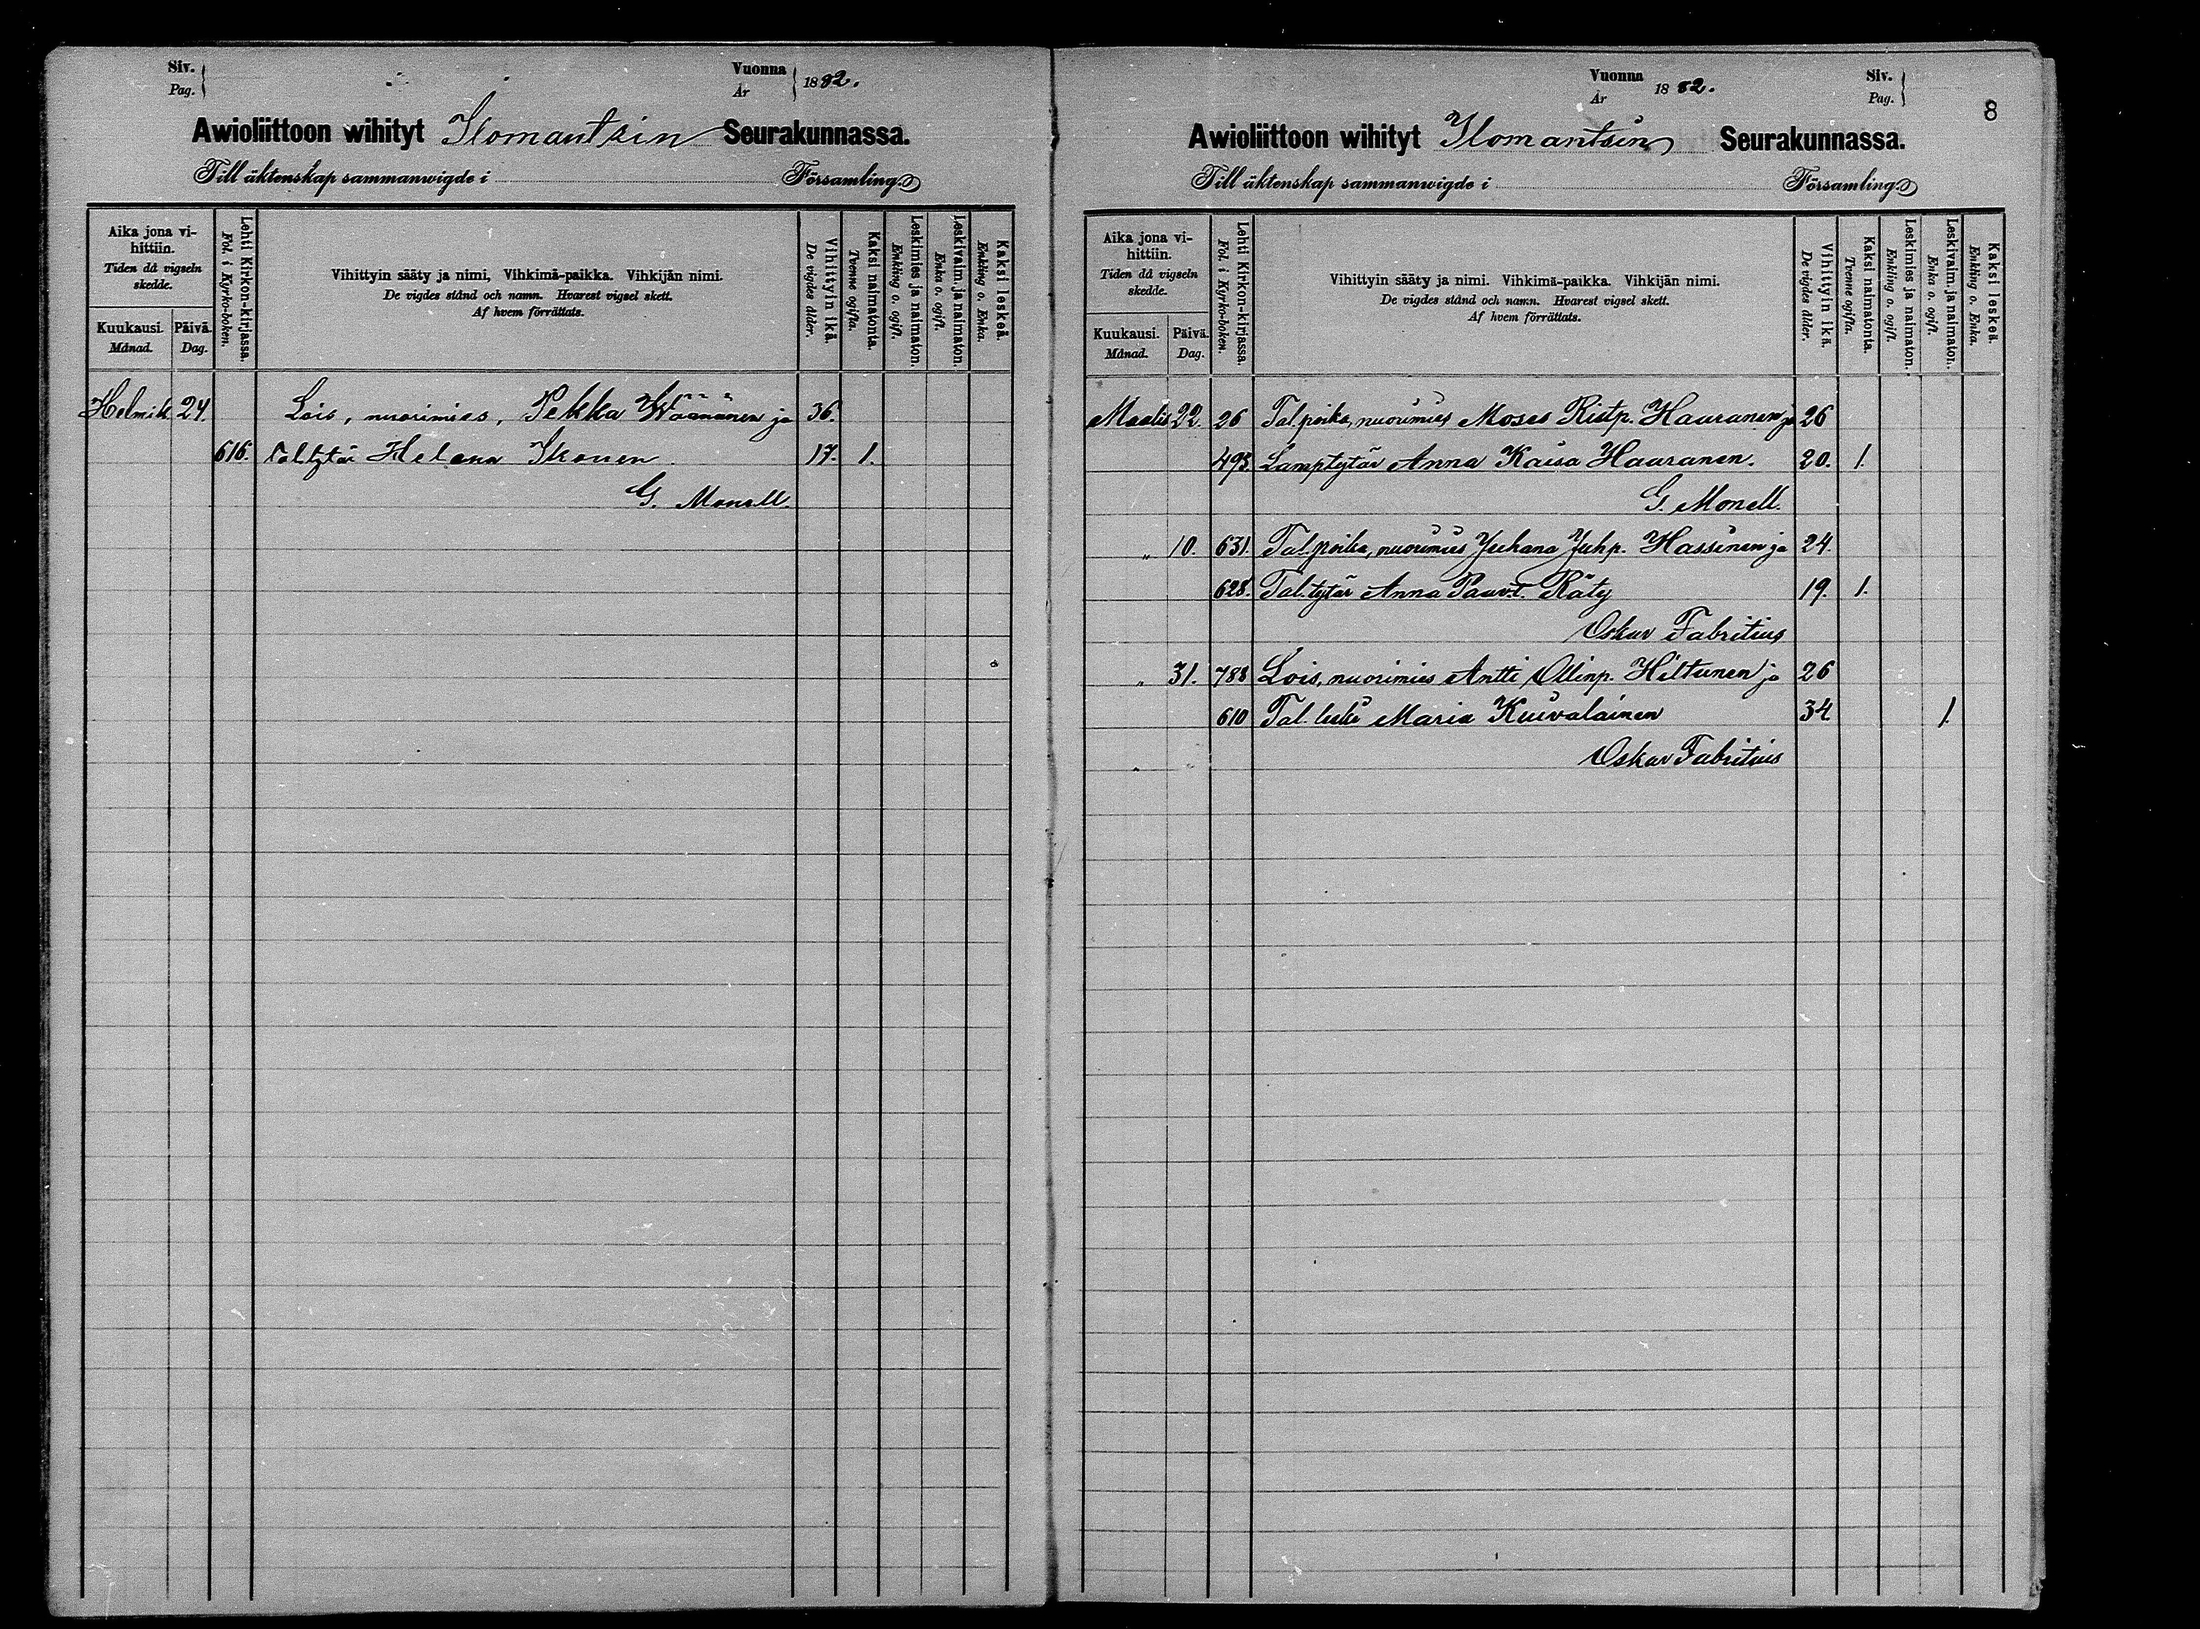 Siv.
Pag.
Vuonna
År
1882.
Awioliittoon wihityt Ilomantsin Seurakunnassa.
Till äktenskap sammanwigde i Församling.
Aika jona vi-
hittiin.
Tiden då vigseln
skedde.
Kuukausi.
Månad.
Päivä.
Dag.
Lehti Kirkon-kirjassa.
Fol. i Kyrko-boken.
Vihittyin sääty ja nimi, Vihkimä-paikka. Vihkijän nimi.
De vigdes stånd och namn. Hvarest vigsel skett.
Af hvem förrättats.
Vihittyin ikä.
De vigdes ålder.
Kaksi naimatonta.
Tvenne ogifta.
Leskimies ja naimaton.
Enkling o. ogift.
Leskivaim. ja naimaton.
Enka o. ogift.
Kaksi leskeä.
Enkling o. Enka.
Helmik. 24. Lois, nuorimies, Pekka Wäänänen ja 36.
616. Tal.tytär Helena Ikonen. 17. 1.
G. Monell.
Vuonna
År
1882.
Siv.
Pag.
8
Awioliittoon wihityt Ilomantsin Seurakunnassa.
Till äktenskap sammanwigde i Församling.
Aika jona vi-
hittiin.
Tiden då vigseln
skedde.
Kuukausi.
Månad.
Päivä.
Dag.
Lehti Kirkon-kirjassa.
Fol. i Kyrko-boken.
Vihittyin sääty ja nimi. Vihkimä-paikka. Vihkijän nimi.
De vigdes stånd och namn. Hvarest vigsel skett.
Af hvem förrättats.
Vihittyin ikä.
De vigdes ålder.
Kaksi naimatonta.
Tvenne ogifta.
Leskimies ja naimaton.
Enkling o. ogift.
Leskivaim. ja naimaton.
Enka o. ogift.
Kaksi leskeä.
Enkling o. Enka.
Maalis 22. 26 Tal.poika, nuorimies Moses Ristp. Hauranen ja 26
493. Lamptytär Anna Kaisa Hauranen. 20. 1.
G. Monell.
„ 10. 631. Tal.poika, nuorimies Juhana Juhp. Hassinen ja 24.
628. Tal.tytär Anna Paavt. Räty 19. 1.
Oskar Fabritius
„ 31. 788 Lois, nuorimies Antti Ollinp. Hiltunen ja 26
610 Tal. leski Maria Kuivalainen 34 1.
Oskar Fabritius